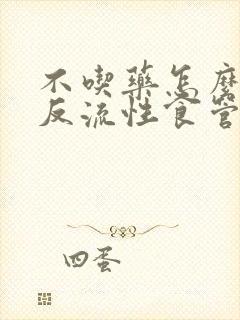 不喫藥怎麽
反流性食管
四蛋